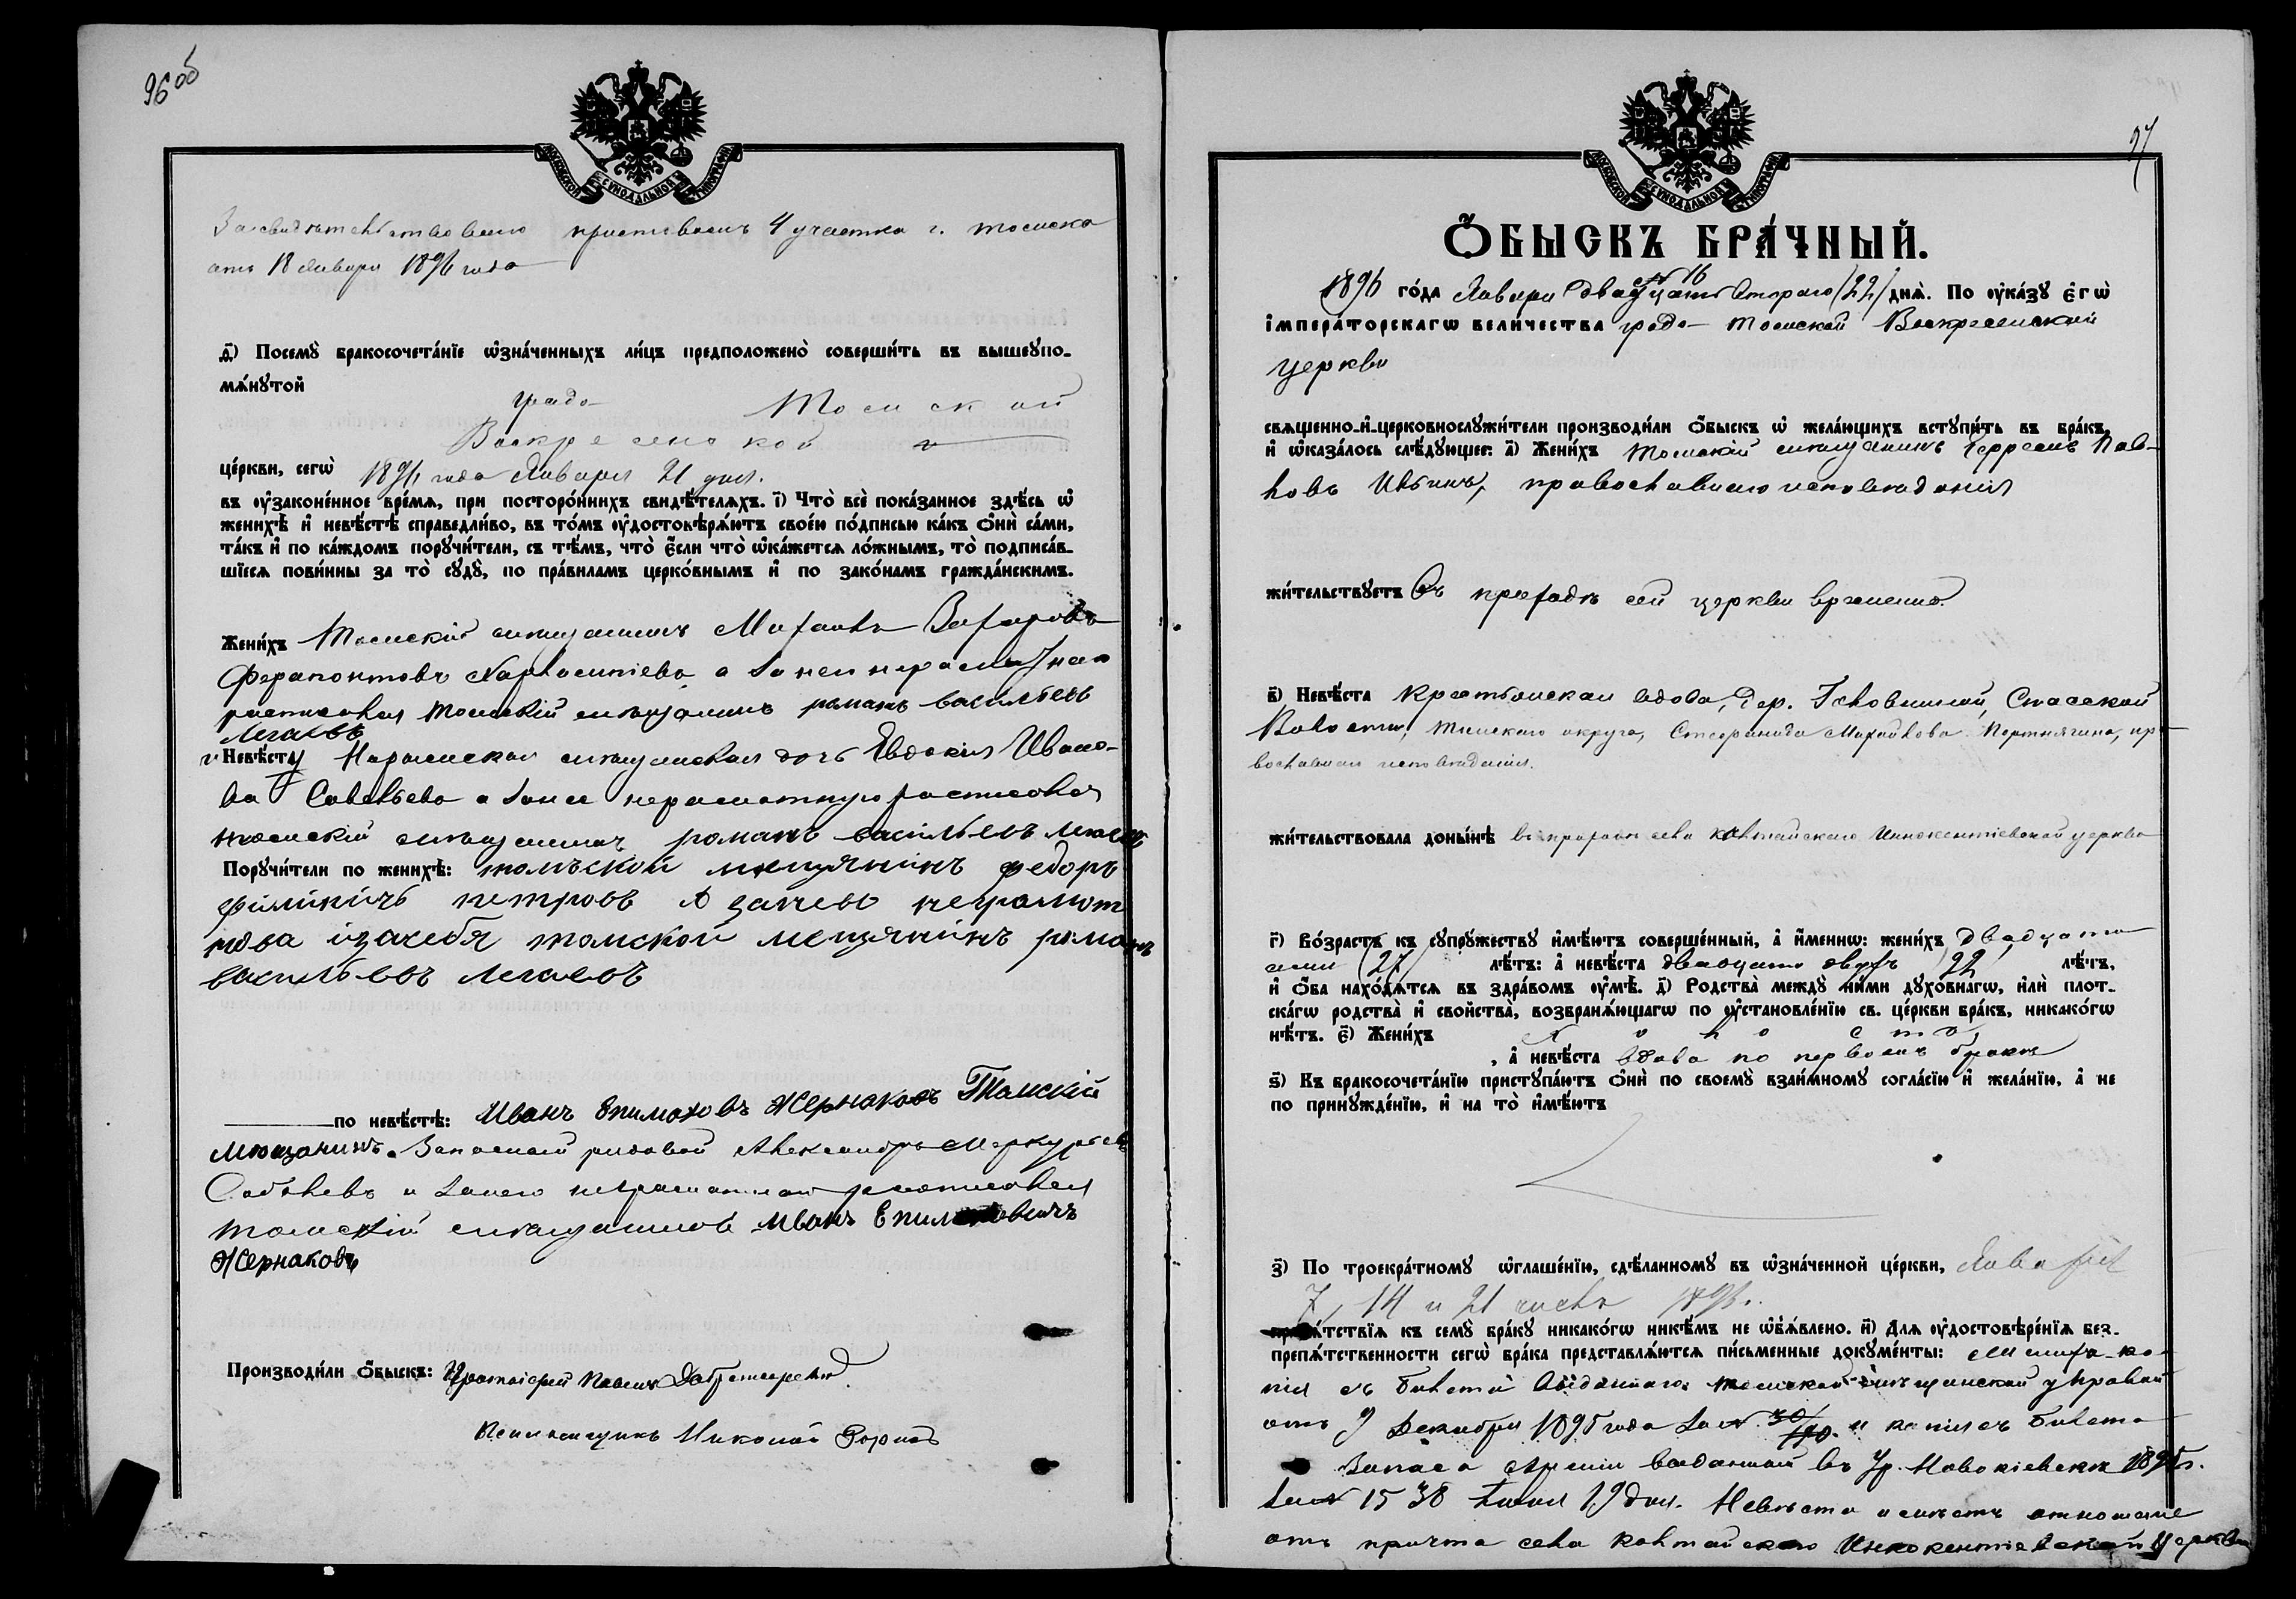 96 об
МОСКОВСКОЙ СѴНОДАЛЬНОЙ ТИПОГРАФІИ
Засвидѣтельствовано приставомъ 4 участка г. Томска
отъ 18 Января 1896 года
ѳ҃) Посемꙋ̀ бракосочета́нїе ѡ҆зна́ченныхъ ли́цъ предположено̀ соверши́ть въ вышеꙋпо-
мѧ́нꙋтой
градо- Томской
Воскресенской
це́ркви, сегѡ̀ 1896 года Января 21 дня.
въ ᲂу҆зако́ненное вре́мѧ, при посторо́ннихъ свидѣ́телѧхъ. і҃) Что̀ всѐ пока́занное здѣ́сь ѡ҆
женихѣ̀ и҆ невѣ́стѣ справедли́во, въ то́мъ ᲂу҆достовѣрѧ́ютъ свое́ю по́дписью ка́къ ѻ҆нѝ са́ми,
та́къ и҆ по ка́ждомъ порꙋчи́тели, съ тѣ́мъ, что̀ є҆́сли что̀ ѡ҆ка́жетсѧ ло́жнымъ, то̀ подписа́в-
шїесѧ пови́нны за то̀ сꙋдꙋ̀, по пра́виламъ церко́внымъ и҆ по зако́намъ гражда́нскимъ.
Жени́хъ Томскій мѣщанинъ Михаилъ Захаровъ
Ферапонтовъ
росписался Томскій мѣщанинъ романъ васильевъ
Легаевъ
Невѣ́стꙋ Нарымская мѣщанская дочь Евдокія Ивано-
ва Савельева а за нее неграмотную росписался
томскій мѣщанинъ романъ васильевъ легаевъ
Порꙋчи́тели по женихѣ̀: томъской мещянинъ федоръ
филипичъ петровъ А занево неграмот
това изасебя томской мещянинъ романъ
васильевъ легаевъ
по невѣ́стѣ: Иванъ Епимаховъ Жернаковъ Томскій
Мещанинъ. Запасной рядовой Александръ Меркурьевъ
Собалевъ и занего неграмотнаго росписался
томскій мѣщанинъ Иванъ Епимаховичъ
Жернаковъ
Производи́ли ѻ҆́быскъ: Протоіерей Павелъ
Псаломщикъ Николай
97
МОСКОВСКОЙ СѴНОДАЛЬНОЙ ТИПОГРАФІИ
Ѻ҆́БЫСКЪ БРА́ЧНЫЙ.
№ 16
1896 го́да Января двадцать втораго /22/ днѧ̀. По ᲂу҆ка́зꙋ є҆гѡ̀
і҆мпера́торскагѡ вели́чества градо- Томской Воскресенской
церкви
свѧще́нно-и҆-церковнослꙋжи́тели производи́ли ѻ҆́быскъ ѡ҆ жела́ющихъ встꙋпи́ть въ бра́къ,
и҆ ѡ҆каза́лось слѣ́дꙋющее: а҃) Жени́хъ Томскій мѣщанинъ Павловъ
Ильинъ, православнаго исповѣданія
жи́тельствꙋетъ Въ приходѣ сей церкви временно.
в҃) Невѣ́ста Крестьянская вдова, дер. Спасской
Волости, Томскаго округа, Стефанида Михайлова Портнягина, пра-
вославнаго исповѣданія.
жи́тельствовала доны́нѣ въ приходѣ села Колтайскаго Иннокентіевской церкви
г҃) Во́зрастъ къ сꙋпрꙋ́жествꙋ и҆мѣ́ютъ соверше́нный, а҆ и҆́меннѡ: жени́хъ двадцати
семи /27/ лѣ́тъ: а҆ невѣ́ста двадцати двухъ /22/ лѣ́тъ,
и҆ ѻ҆́ба нахо́дѧтсѧ въ здра́вомъ ᲂу҆мѣ̀. д҃) Родства̀ междꙋ ни́ми дꙋхо́внагѡ, и҆лѝ плот-
ска́гѡ родства̀ и҆ сво́йства̀, возбранѧ́ющагѡ по ᲂу҆становле́нїю св. це́ркви бра́къ, никако́гѡ
нѣ́тъ. є҃) Жени́хъ Холостъ
, а҆ невѣ́ста вдова по первомъ бракѣ
ѕ҃) Къ бракосочета́нїю пристꙋпа́ютъ ѻ҆нѝ по своемꙋ̀ взаи́мномꙋ согла́сїю и҆ жела́нїю, а҆ не
по принꙋжде́нїю, и҆ на то̀ и҆мѣ́ютъ
з҃) По троекра́тномꙋ ѡ҆глаше́нїю, сдѣ́ланномꙋ въ ѡ҆зна́ченной це́ркви, Января
7, 14 и 21 чиселъ 1896.
препѧ́тствїѧ къ семꙋ̀ бра́кꙋ никако́гѡ никѣ́мъ не ѡ҆б̾ѧ́влено. и҃) Длѧ ᲂу҆достовѣре́нїѧ без-
препѧ́тственности сегѡ̀ бра́ка представлѧ́ютсѧ пи́сьменные докꙋме́нты: ко-
пія съ билета выданнаго Томской мѣщанской управой
отъ 9 Декабря 1895 года за № и копія съ билета
Запаса Арміи выданной въ Ур. Новокіевске 1895 г.
за № 1538 19 дня. Невѣста имѣетъ отношеніе
отъ причта села Колтайскаго Иннокентіевской Церкви